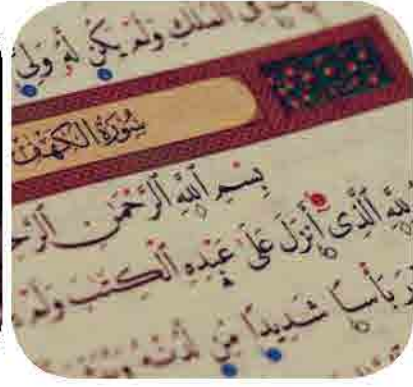 فِى ٱلْمُلْكِ وَلَمْ يَكُن لَّهُ وَلِىٌّ
سُورَةُ الْكَهْفِ
بِسْمِ ٱللَّهِ ٱلرَّحْمَٰنِ
ٱلَّذِىٓ أَنزَلَ عَلَىٰ عَبْدِهِ ٱلْكِتَٰبَ وَلَمْ
بَأْسًا شَدِيدًا مِّن لَّدُنْهُ